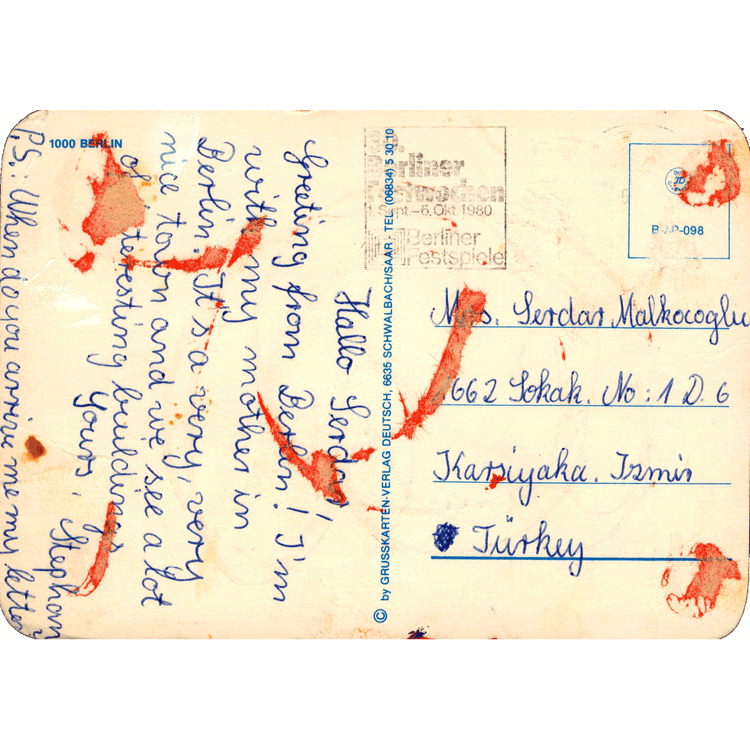 1000 BERLIN
Hallo Serdar!
Greeting from Berlin! I'm
with my mother in
Berlin. It's a very, very
nice town and we see a lot
of interesting buildings
Yours, Stephan
P.S.: When do you arrive me my letter?
© by GRUSSKARTEN-VERLAG DEUTSCH, 6635 SCHWALBACH/SAAR · TEL. (06834) 5 30 10
Berliner
Festwochen
1. Sept.–6. Okt. 1980
Berliner
Festspiele
B-AP-098
Mrs. Serdar Malkocoglu
1662 Sokak. No: 1 D. 6
Karsiyaka. Izmir
Türkey